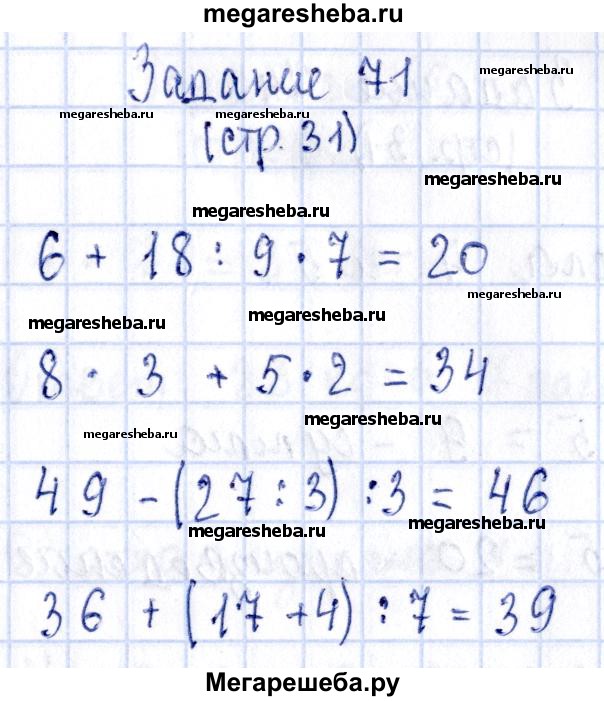 megaresheba.ru
Задание 71
megaresheba.ru
megaresheba.ru
megaresheba.ru
(стр. 31)
megaresheba.ru
megaresheba.ru
6 + 18 : 9 · 7 = 20
megaresheba.ru
megaresheba.ru
megaresheba.ru
8 · 3 + 5 · 2 = 34
megaresheba.ru
megaresheba.ru
49 - (27 : 3) : 3 = 46
megaresheba.ru
megaresheba.ru
36 + (17 + 4) : 7 = 39
Мегарешеба.ру